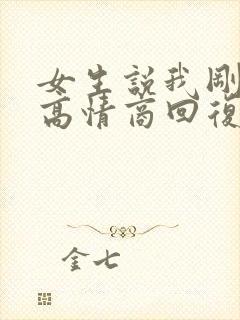 女生説我剛
高情商回復
金七